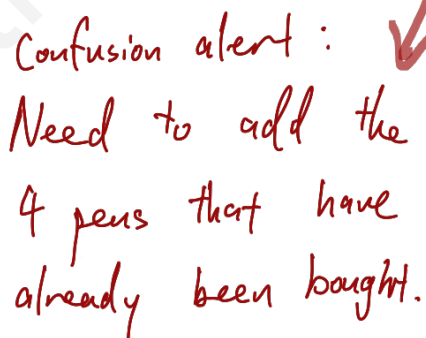 Confusion alert:
Need to add the
4 pens that have
already been bought.